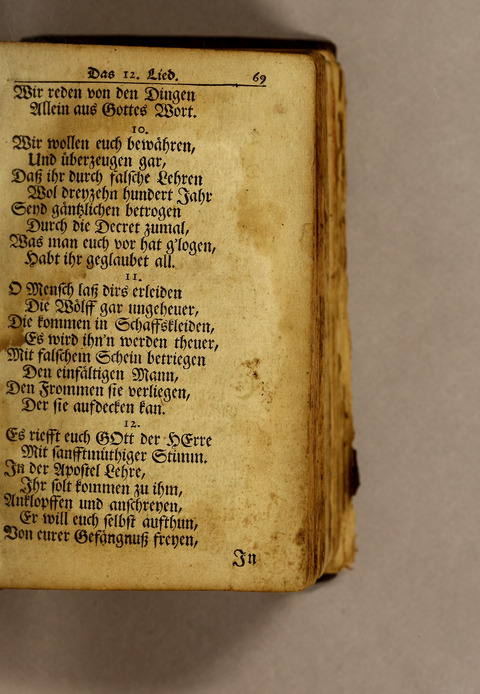 Das 12. Lied. 69
Wir reden von den Dingen
Allein aus Gottes Wort.
10.
Wir wollen euch bewähren,
Und überzeugen gar,
Daß ihr durch falsche Lehren
Wol dreyzehn hundert Jahr
Seyd gäntzlichen betrogen
Durch die Decret zumal,
Was man euch vor hat g'logen,
Habt ihr geglaubet all.
11.
O Mensch laß dirs erleiden
Die Wölff gar ungeheuer,
Die kommen in Schaffskleiden,
Es wird ihn'n werden theuer,
Mit falschem Schein betriegen
Den einfältigen Mann,
Den Frommen sie verliegen,
Der sie aufdecken kan.
12.
Es riefft euch GOtt der HErre
Mit sanfftmüthiger Stimm.
In der Apostel Lehre,
Ihr solt kommen zu ihm,
Anklopffen und anschreyen,
Er will euch selbst aufthun,
Von eurer Gefängnuß freyen,
In